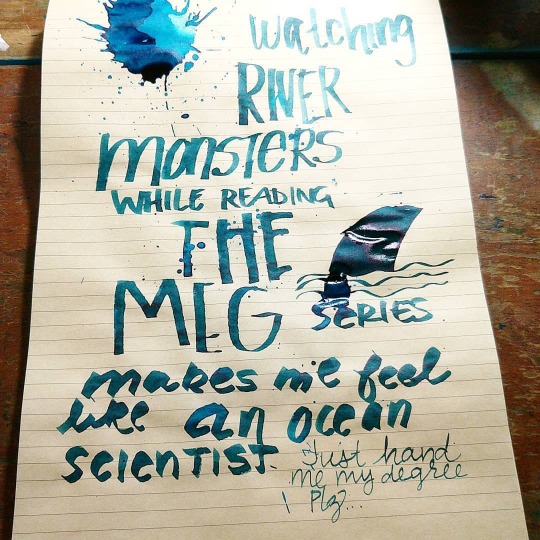 watching
RIVER
monsTERS
WHILE READING
THE
MEG
SERIES
makes me feel
like an ocean
scientist.
Just hand
me my degree
Plz...